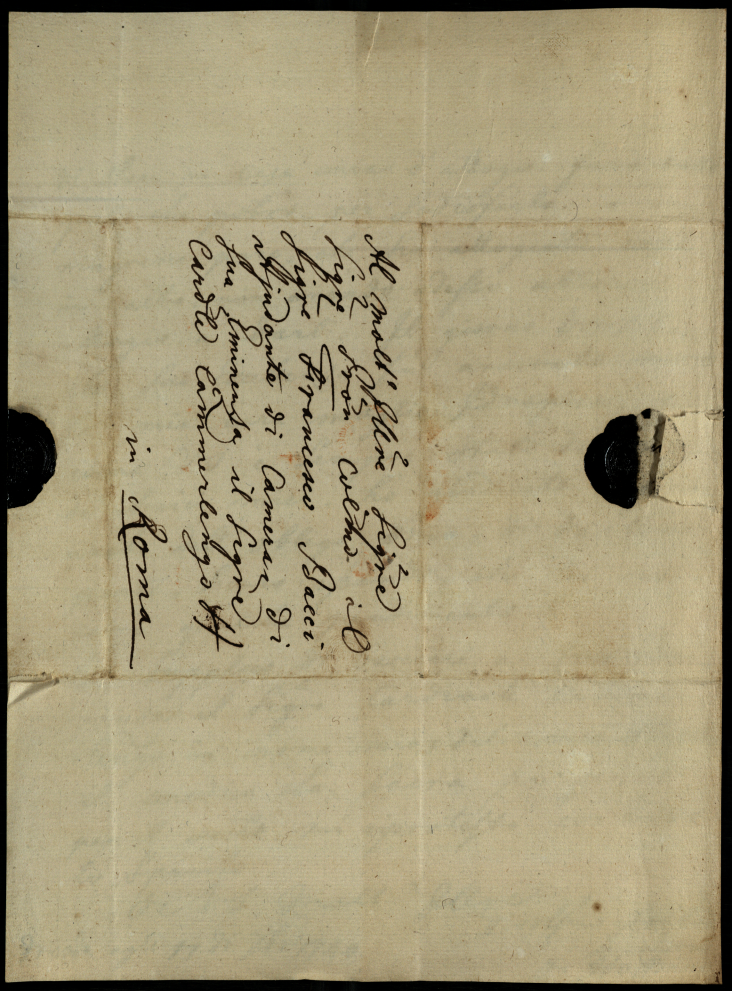 Al Molt' Illre Sigre
Sigre Prõn Colmo il
Sigre Francesco Bacci
Ajudante di Camera di
Sua Eminenza il Sigre
Cardle Cammerlengo
in Roma